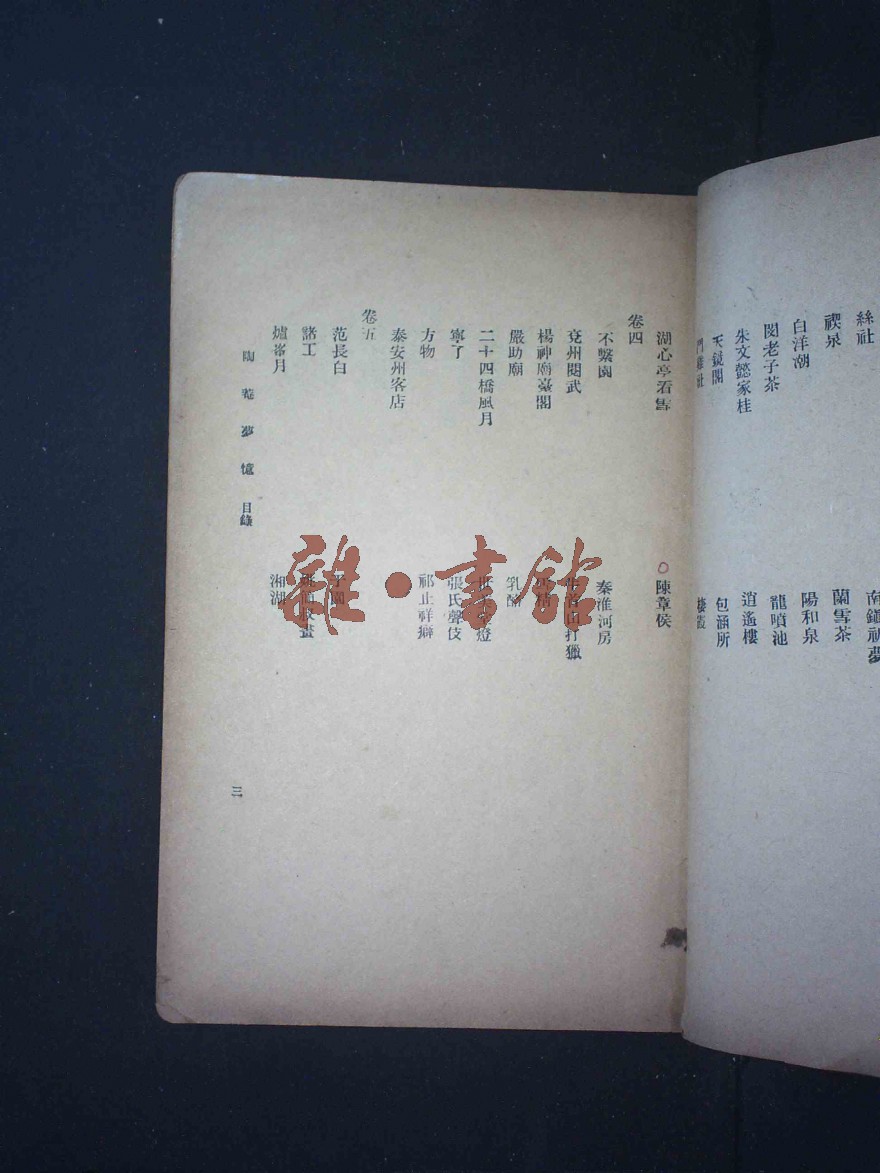 絲社
南鎮祈夢
禊泉
蘭雪茶
白洋潮
陽和泉
閔老子茶
龍噴池
朱文懿家桂
逍遙樓
天鏡閣
包涵所
湖心亭看雪
陳章侯
卷四
不繫園
秦淮河房
兗州閱武
打獵
楊神廟臺閣
嚴助廟
乳酪
二十四橋風月
燈
寧了
張氏聲伎
方物
祁止祥癖
泰安州客店
卷五
范長白
于園
諸工
畫
爐峯月
湘湖
陶菴夢憶 目錄
三
雜·書館